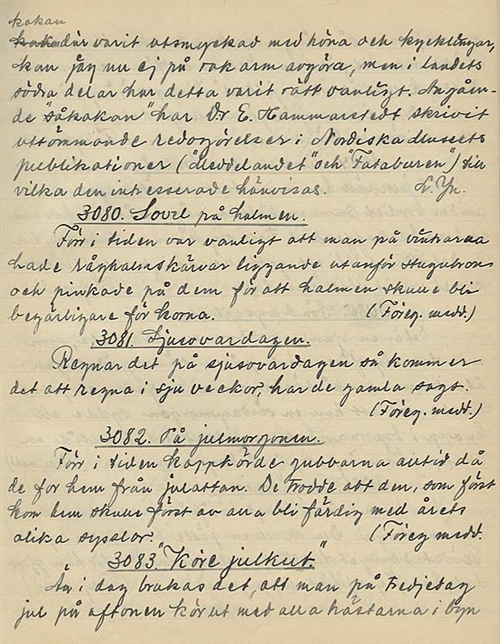 kakan
där varit utsmyckad med höna och kycklingar,
kan jag nu ej på rak arm avgöra, men i landets
södra delar har detta varit rätt vanligt. Angåen-
de "såkakan" har Dr E. Hammarstedt skrivit
uttömmande redogörelser i Nordiska Museets
publikationer ("Meddelandet" och "Fataburen") till
vilka den intresserade hänvisas. L. Yn.
3080. Sovel på halmen.
Förr i tiden var vanligt att man på vintrarna
hade råghalmskärvar liggande utanför stugubron
och pinkade på dem för att halmen skulle bli
begärligare för korna. (Föreg. medd.)
3081. Sjusovardagen.
Regnar det på sjusovardagen så kommer
det att regna i sju veckor, har de gamla sagt.
(Föreg. medd.)
3082. På julmorgonen.
Förr i tiden kappkörde gubbarna alltid då
de for hem från julottan. De trodde att den, som först
kom hem skulle först av alla bli färdig med årets
olika sysslor. (Föreg medd.
3083. "Köre julkut."
Än i dag brukas det, att man på tredjedag
jul på aftonen kör ut med alla hästarna i byn